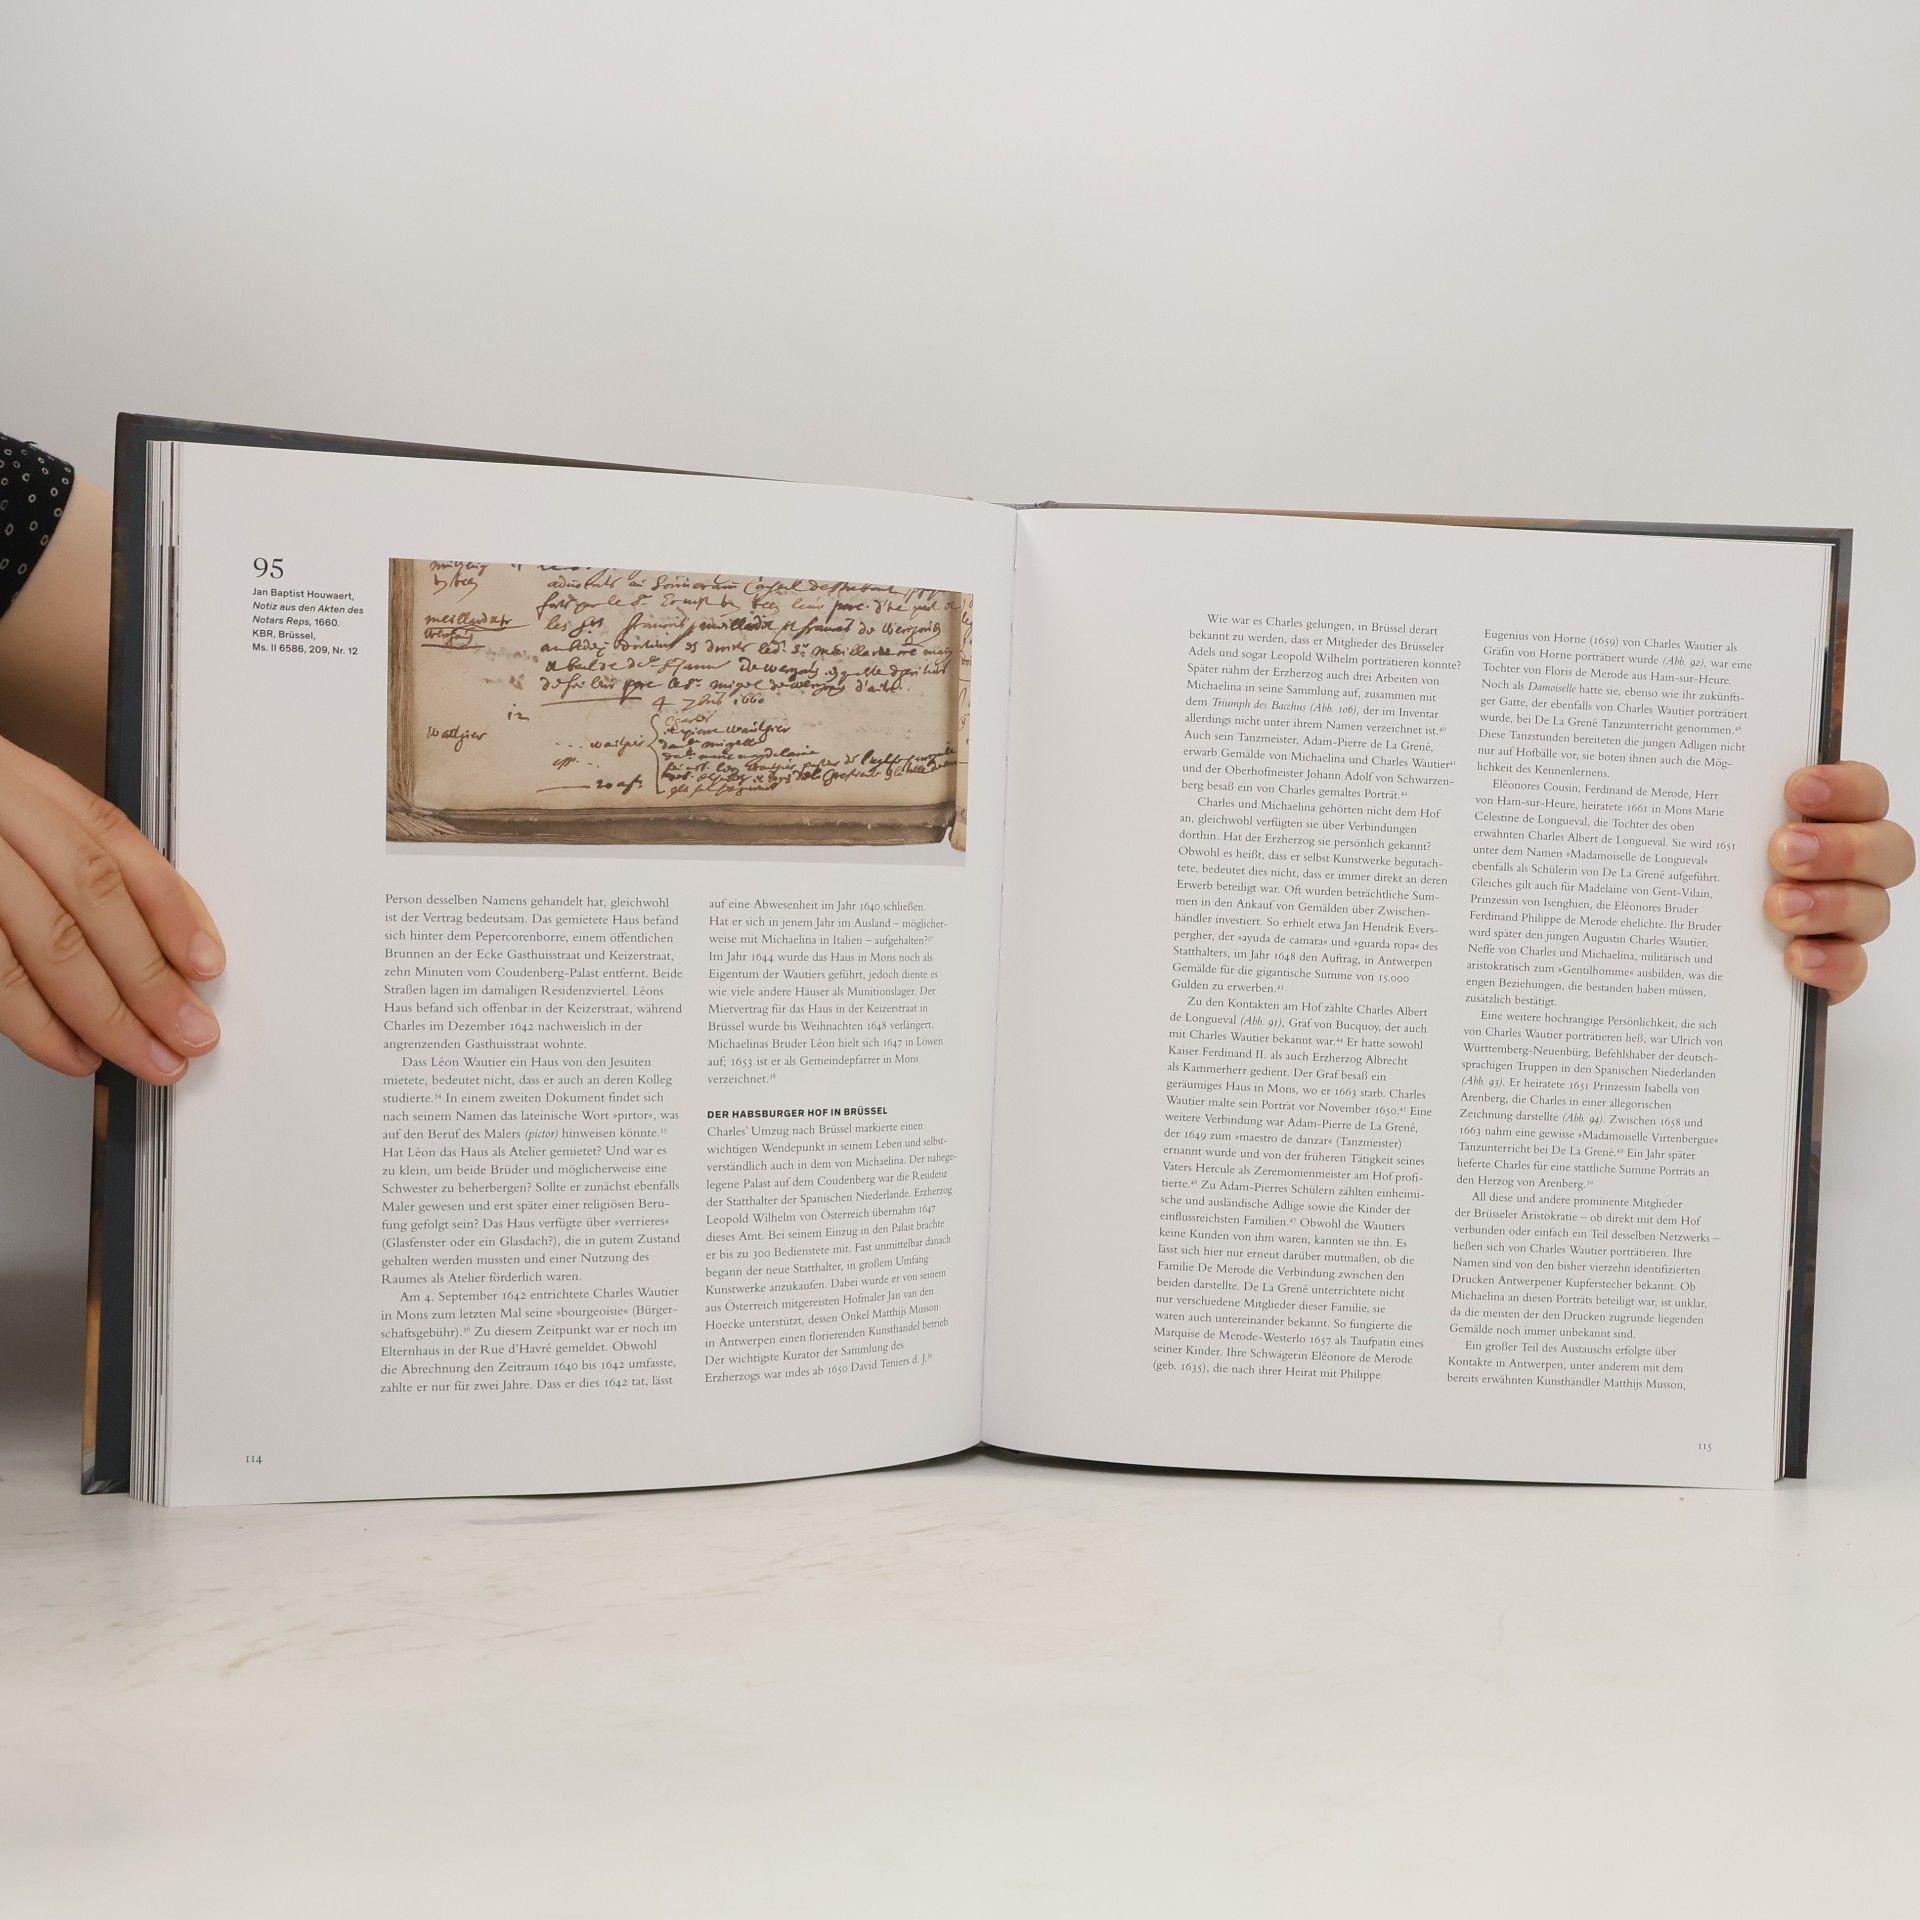 95
Jan Baptist Houwaert,
Notiz aus den Akten des
Notars Reps, 1660.
KBR, Brüssel,
Ms. II 6586, 209, Nr. 12
Person desselben Namens gehandelt hat, gleichwohl
ist der Vertrag bedeutsam. Das gemietete Haus befand
sich hinter dem Pepercorenborre, einem öffentlichen
Brunnen an der Ecke Gasthuisstraat und Keizerstraat,
zehn Minuten vom Coudenberg-Palast entfernt. Beide
Straßen lagen im damaligen Residenzviertel. Léons
Haus befand sich offenbar in der Keizerstraat, während
Charles im Dezember 1642 nachweislich in der
angrenzenden Gasthuisstraat wohnte.
Dass Léon Wautier ein Haus von den Jesuiten
mietete, bedeutet nicht, dass er auch an deren Kolleg
studierte.³⁴ In einem zweiten Dokument findet sich
nach seinem Namen das lateinische Wort »pirtor«, was
auf den Beruf des Malers (pictor) hinweisen könnte.³⁵
Hat Léon das Haus als Atelier gemietet? Und war es
zu klein, um beide Brüder und möglicherweise eine
Schwester zu beherbergen? Sollte er zunächst ebenfalls
Maler gewesen und erst später einer religiösen Beru-
fung gefolgt sein? Das Haus verfügte über »verrieres«
(Glasfenster oder ein Glasdach?), die in gutem Zustand
gehalten werden mussten und einer Nutzung des
Raumes als Atelier förderlich waren.
Am 4. September 1642 entrichtete Charles Wautier
in Mons zum letzten Mal seine »bourgeoisie« (Bürger-
schaftsgebühr).³⁶ Zu diesem Zeitpunkt war er noch im
Elternhaus in der Rue d'Havré gemeldet. Obwohl
die Abrechnung den Zeitraum 1640 bis 1642 umfasste,
zahlte er nur für zwei Jahre. Dass er dies 1642 tat, lässt
auf eine Abwesenheit im Jahr 1640 schließen.
Hat er sich in jenem Jahr im Ausland – möglicher-
weise mit Michaelina in Italien – aufgehalten?³⁷
Im Jahr 1644 wurde das Haus in Mons noch als
Eigentum der Wautiers geführt, jedoch diente es
wie viele andere Häuser als Munitionslager. Der
Mietvertrag für das Haus in der Keizerstraat in
Brüssel wurde bis Weihnachten 1648 verlängert.
Michaelinas Bruder Léon hielt sich 1647 in Löwen
auf; 1653 ist er als Gemeindepfarrer in Mons
verzeichnet.³⁸
DER HABSBURGER HOF IN BRÜSSEL
Charles' Umzug nach Brüssel markierte einen
wichtigen Wendepunkt in seinem Leben und selbst-
verständlich auch in dem von Michaelina. Der nahege-
legene Palast auf dem Coudenberg war die Residenz
der Statthalter der Spanischen Niederlande. Erzherzog
Leopold Wilhelm von Österreich übernahm 1647
dieses Amt. Bei seinem Einzug in den Palast brachte
er bis zu 300 Bedienstete mit. Fast unmittelbar danach
begann der neue Statthalter, in großem Umfang
Kunstwerke anzukaufen. Dabei wurde er von seinem
aus Österreich mitgereisten Hofmaler Jan van den
Hoecke unterstützt, dessen Onkel Matthijs Musson
in Antwerpen einen florierenden Kunsthandel betrieb.
Der wichtigste Kurator der Sammlung des
Erzherzogs war indes ab 1650 David Teniers d. J.³⁹
114
Wie war es Charles gelungen, in Brüssel derart
bekannt zu werden, dass er Mitglieder des Brüsseler
Adels und sogar Leopold Wilhelm porträtieren konnte?
Später nahm der Erzherzog auch drei Arbeiten von
Michaelina in seine Sammlung auf, zusammen mit
dem Triumph des Bacchus (Abb. 106), der im Inventar
allerdings nicht unter ihrem Namen verzeichnet ist.⁴⁰
Auch sein Tanzmeister, Adam-Pierre de La Grené,
erwarb Gemälde von Michaelina und Charles Wautier⁴¹
und der Oberhofmeister Johann Adolf von Schwarzen-
berg besaß ein von Charles gemaltes Porträt.⁴²
Charles und Michaelina gehörten nicht dem Hof
an, gleichwohl verfügten sie über Verbindungen
dorthin. Hat der Erzherzog sie persönlich gekannt?
Obwohl es heißt, dass er selbst Kunstwerke begutach-
tete, bedeutet dies nicht, dass er immer direkt an deren
Erwerb beteiligt war. Oft wurden beträchtliche Sum-
men in den Ankauf von Gemälden über Zwischen-
händler investiert. So erhielt etwa Jan Hendrik Evers-
pergher, der »ayuda de camara« und »guarda ropa« des
Statthalters, im Jahr 1648 den Auftrag, in Antwerpen
Gemälde für die gigantische Summe von 15.000
Gulden zu erwerben.⁴³
Zu den Kontakten am Hof zählte Charles Albert
de Longueval (Abb. 91), Graf von Bucquoy, der auch
mit Charles Wautier bekannt war.⁴⁴ Er hatte sowohl
Kaiser Ferdinand II. als auch Erzherzog Albrecht
als Kammerherr gedient. Der Graf besaß ein
geräumiges Haus in Mons, wo er 1663 starb. Charles
Wautier malte sein Porträt vor November 1650.⁴⁵ Eine
weitere Verbindung war Adam-Pierre de La Grené,
der 1649 zum »maestro de danzar« (Tanzmeister)
ernannt wurde und von der früheren Tätigkeit seines
Vaters Hercule als Zeremonienmeister am Hof profi-
tierte.⁴⁶ Zu Adam-Pierres Schülern zählten einheimi-
sche und ausländische Adlige sowie die Kinder der
einflussreichsten Familien.⁴⁷ Obwohl die Wautiers
keine Kunden von ihm waren, kannten sie ihn. Es
lässt sich hier nur erneut darüber mutmaßen, ob die
Familie De Merode die Verbindung zwischen den
beiden darstellte. De La Grené unterrichtete nicht
nur verschiedene Mitglieder dieser Familie, sie
waren auch untereinander bekannt. So fungierte die
Marquise de Merode-Westerlo 1657 als Taufpatin eines
seiner Kinder. Ihre Schwägerin Eléonore de Merode
(geb. 1635), die nach ihrer Heirat mit Philippe
Eugenius von Horne (1659) von Charles Wautier als
Gräfin von Horne porträtiert wurde (Abb. 92), war eine
Tochter von Floris de Merode aus Ham-sur-Heure.
Noch als Damoiselle hatte sie, ebenso wie ihr zukünfti-
ger Gatte, der ebenfalls von Charles Wautier porträtiert
wurde, bei De La Grené Tanzunterricht genommen.⁴⁸
Diese Tanzstunden bereiteten die jungen Adligen nicht
nur auf Hofbälle vor, sie boten ihnen auch die Mög-
lichkeit des Kennenlernens.
Eléonores Cousin, Ferdinand de Merode, Herr
von Ham-sur-Heure, heiratete 1661 in Mons Marie
Celestine de Longueval, die Tochter des oben
erwähnten Charles Albert de Longueval. Sie wird 1651
unter dem Namen »Madamoiselle de Longueval«
ebenfalls als Schülerin von De La Grené aufgeführt.
Gleiches gilt auch für Madelaine von Gent-Vilain,
Prinzessin von Isenghien, die Eléonores Bruder
Ferdinand Philippe de Merode ehelichte. Ihr Bruder
wird später den jungen Augustin Charles Wautier,
Neffe von Charles und Michaelina, militärisch und
aristokratisch zum »Gentilhomme« ausbilden, was die
engen Beziehungen, die bestanden haben müssen,
zusätzlich bestätigt.
Eine weitere hochrangige Persönlichkeit, die sich
von Charles Wautier porträtieren ließ, war Ulrich von
Württemberg-Neuenbürg, Befehlshaber der deutsch-
sprachigen Truppen in den Spanischen Niederlanden
(Abb. 93). Er heiratete 1651 Prinzessin Isabella von
Arenberg, die Charles in einer allegorischen
Zeichnung darstellte (Abb. 94). Zwischen 1658 und
1663 nahm eine gewisse »Madamoiselle Virtenbergue«
Tanzunterricht bei De La Grené.⁴⁹ Ein Jahr später
lieferte Charles für eine stattliche Summe Porträts an
den Herzog von Arenberg.⁵⁰
All diese und andere prominente Mitglieder
der Brüsseler Aristokratie – ob direkt mit dem Hof
verbunden oder einfach ein Teil desselben Netzwerks –
ließen sich von Charles Wautier porträtieren. Ihre
Namen sind von den bisher vierzehn identifizierten
Drucken Antwerpener Kupferstecher bekannt. Ob
Michaelina an diesen Porträts beteiligt war, ist unklar,
da die meisten der den Drucken zugrunde liegenden
Gemälde noch immer unbekannt sind.
Ein großer Teil des Austauschs erfolgte über
Kontakte in Antwerpen, unter anderem mit dem
bereits erwähnten Kunsthändler Matthijs Musson,
115